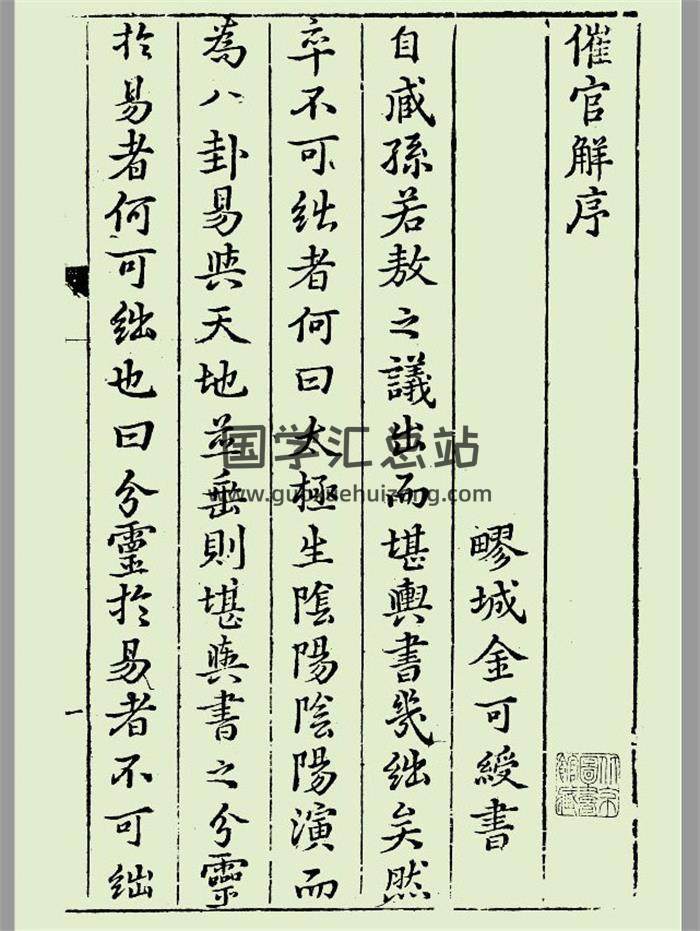 催官解序
疁城金可綬書
自臧孫若敖之議出而堪輿書幾絀矣然
卒不可絀者何曰太極生陰陽陰陽演而
為八卦易與天地並垂則堪輿書之分靈
於易者何可絀也曰分靈於易者不可絀
国学汇总站